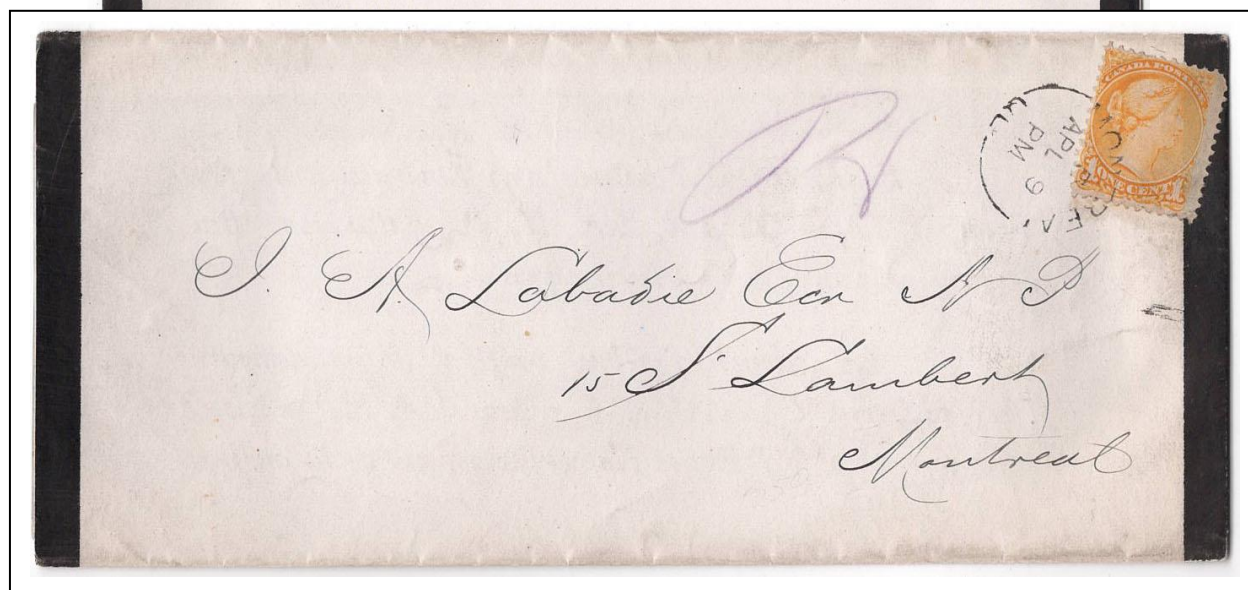 CANADA POSTAGE
ONE CENT
MONTREAL
APL
PM 9
J. A. Labadie Ecr N P
15 St Lambert
Montreal